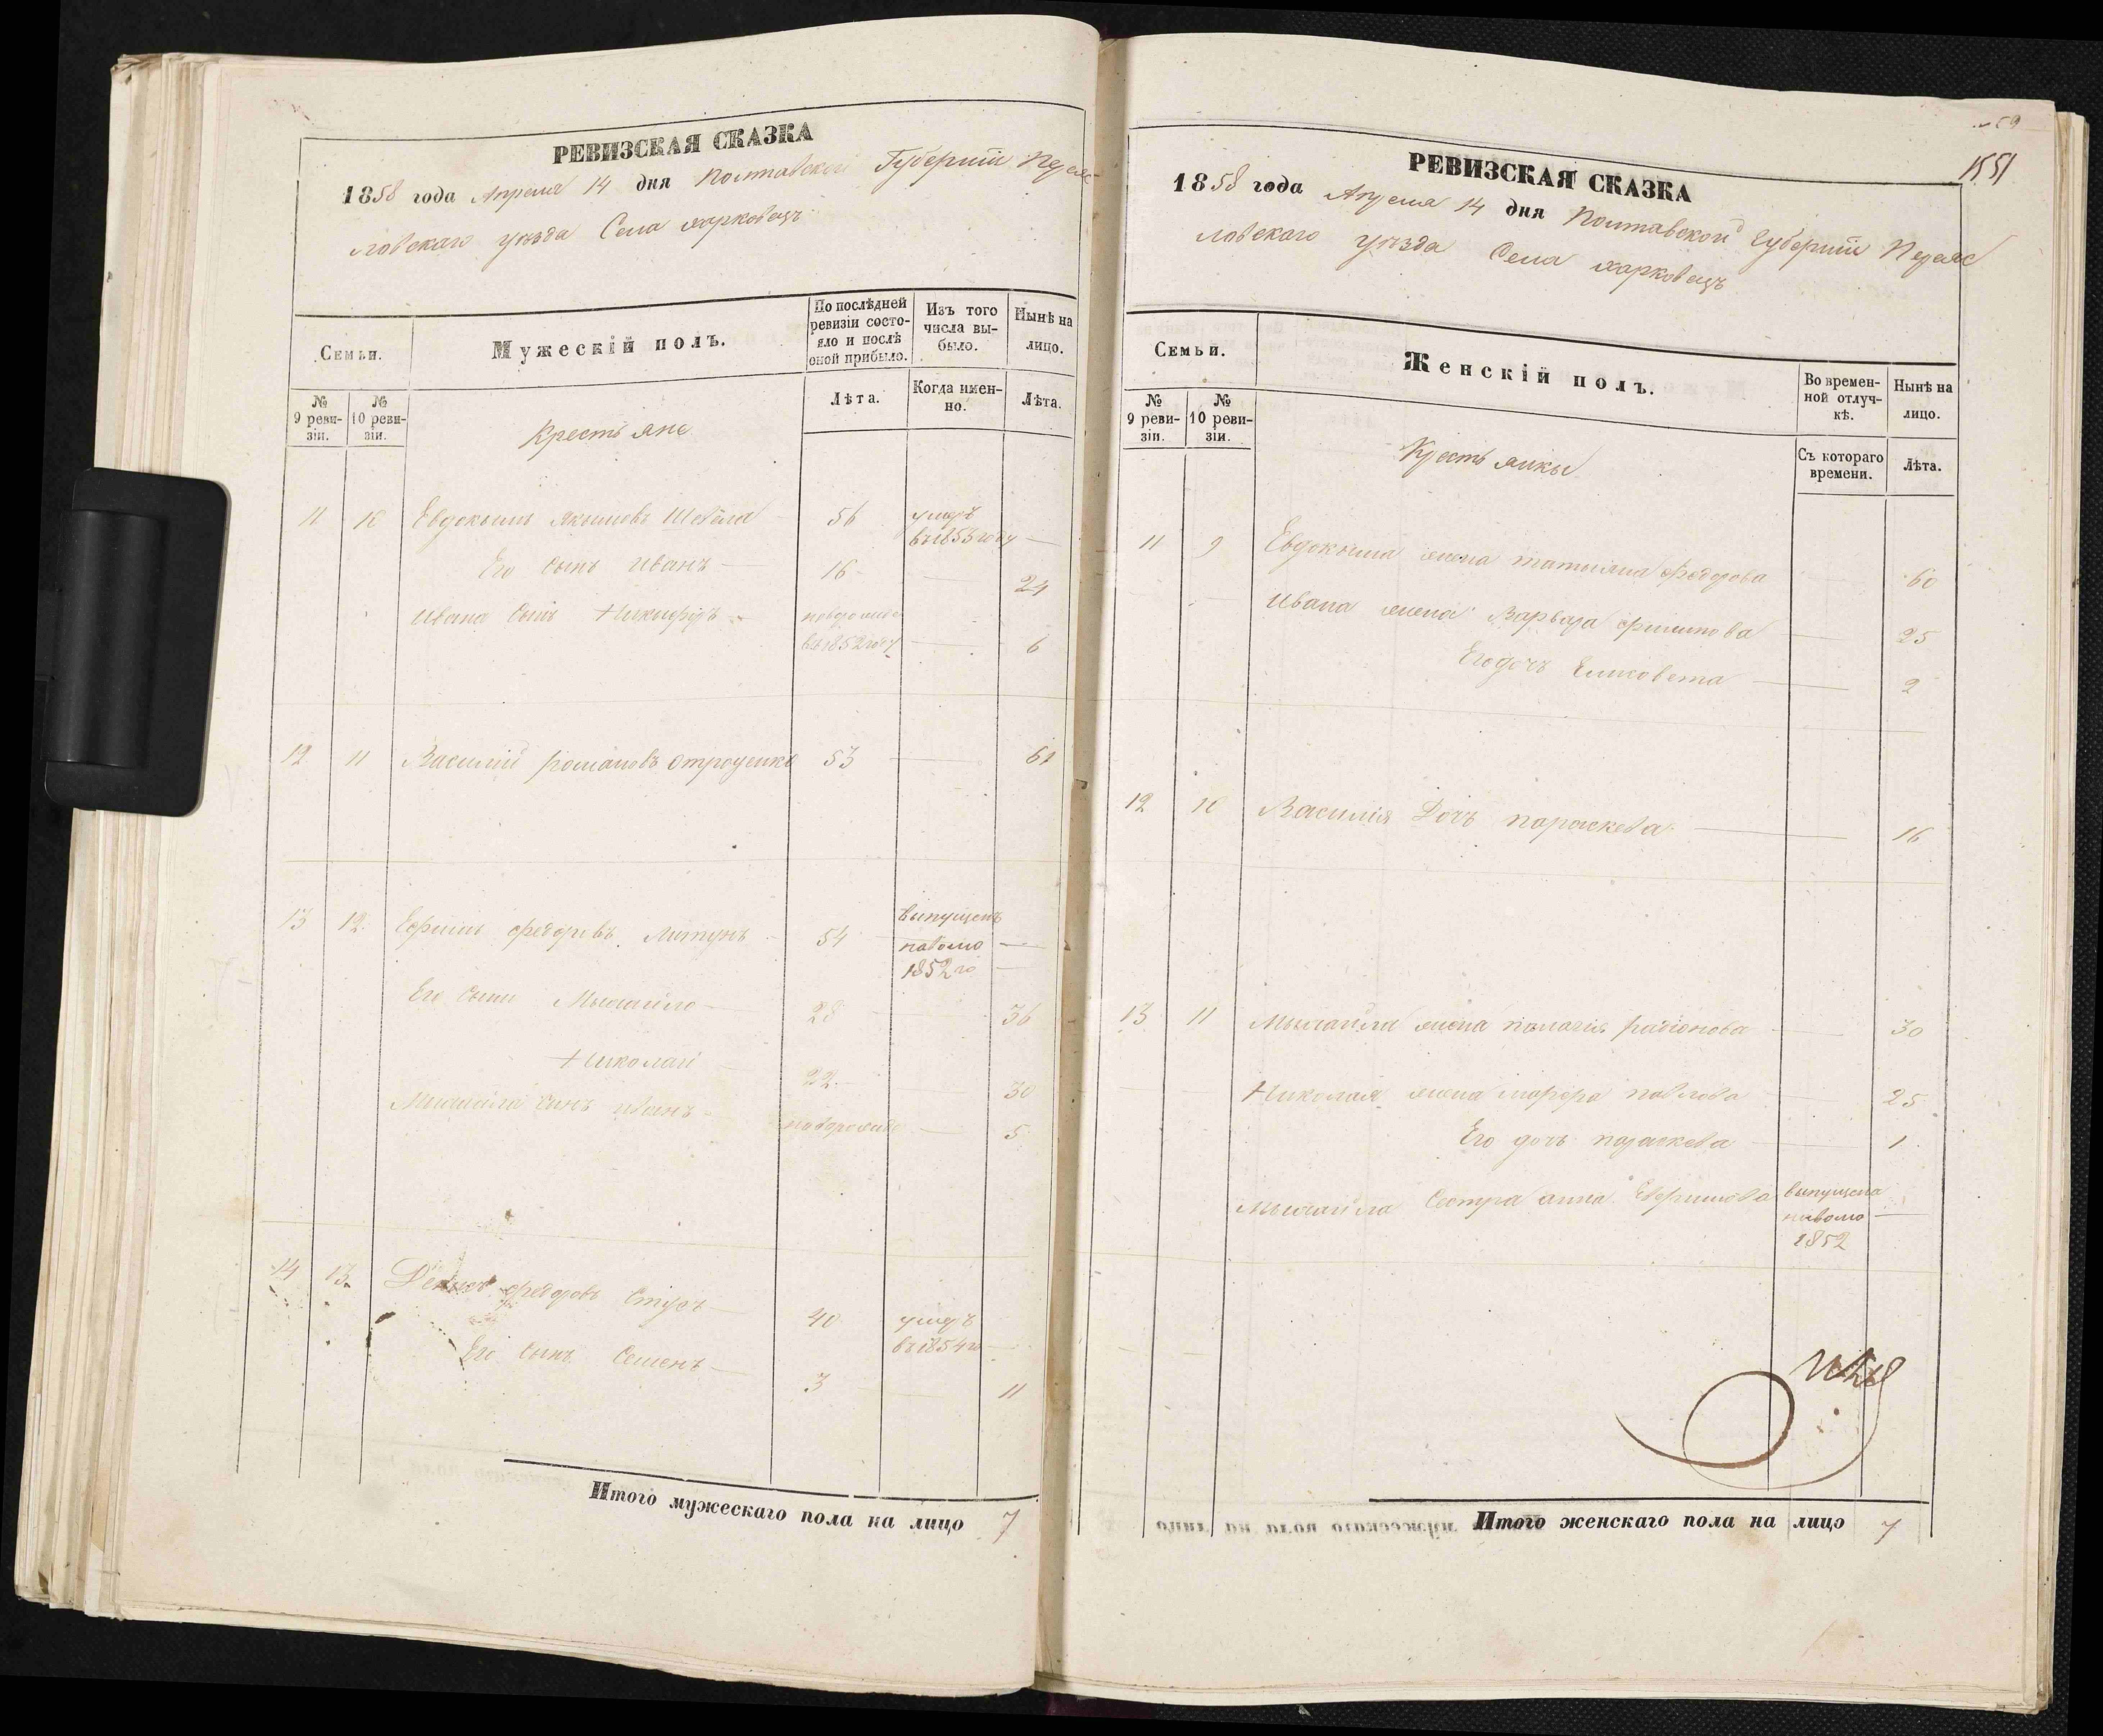 РЕВИЗСКАЯ СКАЗКА
1858 года Апреля 14 дня Полтавской Губернии Переяс
ловскаго уезда Села Харковець
Семьи.
Мужескій полъ.
По послѣдней ревизіи состояло и послѣ оной прибыло.
Изъ того числа выбыло.
Нынѣ на лицо.
№ 9 ревизіи.
№ 10 ревизіи.
Крестьяне
Лѣта.
Когда именно.
Лѣта.
11 10 Евдокимъ Якимовъ 56 умеръ
въ 1853 году —
Его сынъ Иванъ — 16 — 24
Ивана сынъ Никифоръ —
въ 1852 году — 6
12 11 Василий романовъ отрощенко 53 — 61
13 12 Ефимъ федоровъ Литунъ 54 выпущенъ
на волю —
1852 го —
Его сыни Михайло — 28 — 36
Николай — 22 — 30
Михайла синъ иванъ — — 5
14 13 Денисъ федоровъ Стусъ — 40 умеръ
въ 1854 го —
Его сынъ Семенъ — 3 — 11
Итого мужескаго пола на лицо 7
1551
РЕВИЗСКАЯ СКАЗКА
1858 года Апреля 14 дня Полтавской Губернии Переяс
ловскаго уезда Села Харковець
Семьи.
Женскій полъ.
Во временной отлучкѣ.
Нынѣ на лицо.
№ 9 ревизіи.
№ 10 ревизіи.
Крестьянки
Съ котораго времени.
Лѣта.
11 9 Евдокима жена татьяна Федорова — 60
Ивана жена Варвара филипова — 25
Его дочь Елисовета — 2
12 10 Василия Дочь параскева — 16
13 11 Михайла жена пелагия радионова — 30
Николая жена марфа павлова — 25
Его дочь параскева — 1
Михайла Сестра анна Ефимова выпущена
на волю —
1852
Итого женскаго пола на лицо 7